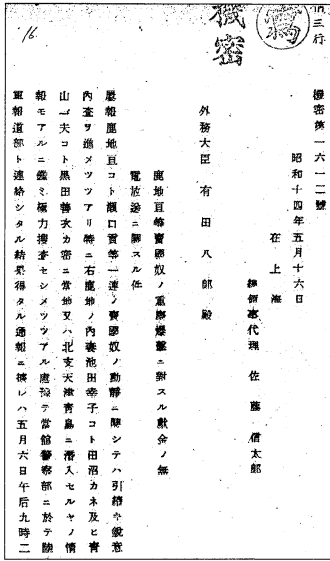 16.
機密
寫
信三行
機密第一六一二號
昭和十四年五月十六日
在上海
總領事代理 佐藤信太郎
外務大臣 有田八郎殿
鹿地亘等賣國奴ノ重慶爆擊ニ對スル獻金ノ無
電放送ニ關スル件
屢報鹿地亘コト瀨口貢等一連ノ賣國奴ノ動靜ニ關シテハ引續キ銳意
內査ヲ進メツツアリ特ニ右鹿地ノ內妻池田幸子コト田沼カネ及ヒ靑
山一夫コト黑田善次カ密ニ當地又ハ北支天津靑島ニ潛入セルヤノ情
報モアルニ鑑ミ極力搜査セシメツツアル處 當館警察部ニ於テ陸
軍報道部ト連絡シタル結果得タル通報ニ據レハ五月六日午后九時二